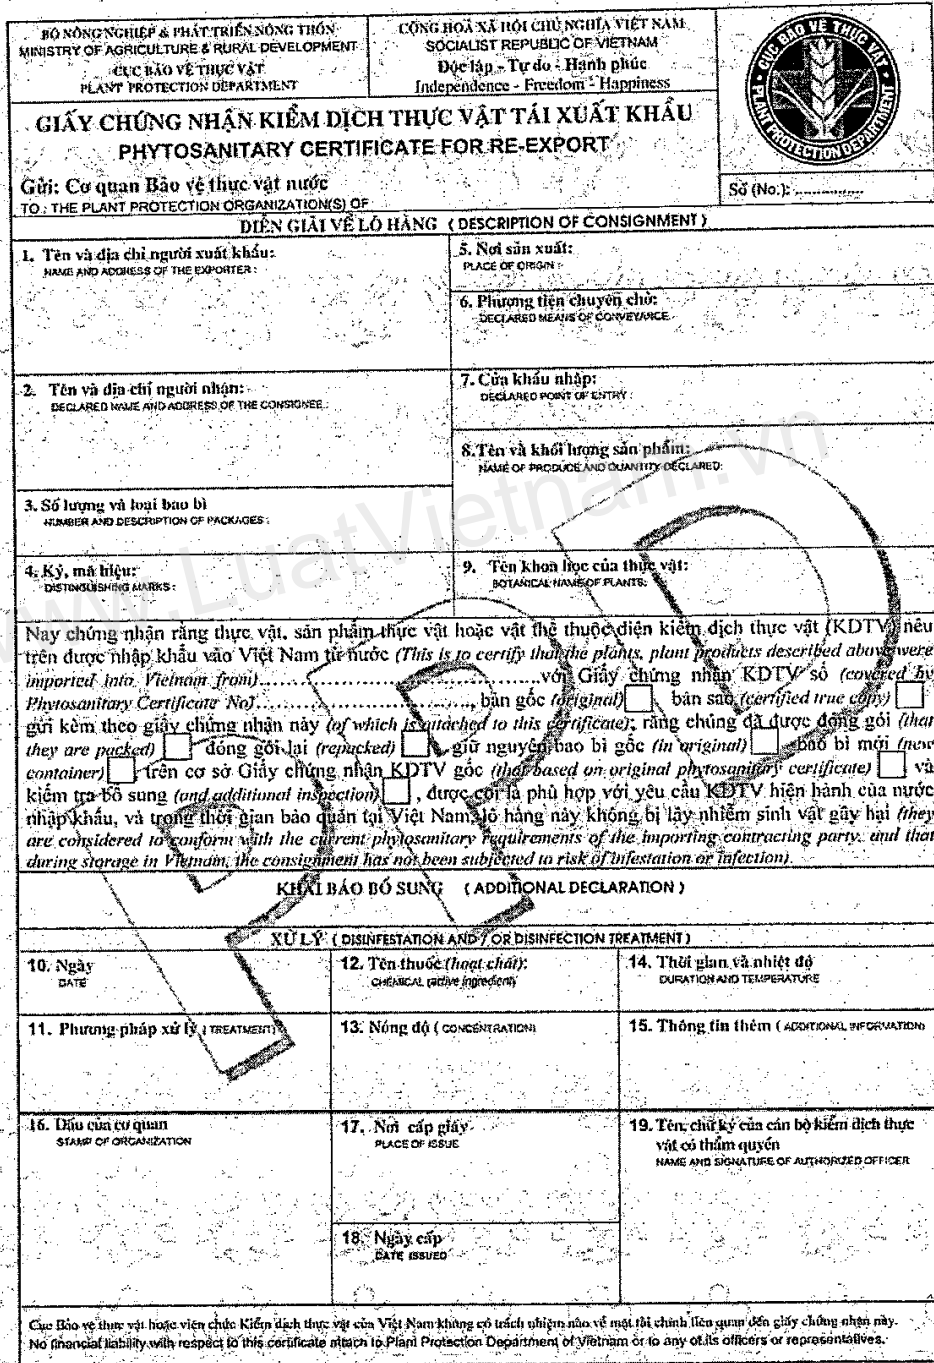 BỘ NÔNG NGHIỆP & PHÁT TRIỂN NÔNG THÔN
MINISTRY OF AGRICULTURE & RURAL DEVELOPMENT
CỤC BẢO VỆ THỰC VẬT
PLANT PROTECTION DEPARTMENT
CỘNG HOÀ XÃ HỘI CHỦ NGHĨA VIỆT NAM
SOCIALIST REPUBLIC OF VIETNAM
Độc lập - Tự do - Hạnh phúc
Independence - Freedom - Happiness
CỤC BẢO VỆ THỰC VẬT
PLANT PROTECTION DEPARTMENT
GIẤY CHỨNG NHẬN KIỂM DỊCH THỰC VẬT TÁI XUẤT KHẨU
PHYTOSANITARY CERTIFICATE FOR RE-EXPORT
Gửi: Cơ quan Bảo vệ thực vật nước
TO : THE PLANT PROTECTION ORGANIZATION(S) OF
Số (No.): ...............
DIỄN GIẢI VỀ LÔ HÀNG ( DESCRIPTION OF CONSIGNMENT )
1. Tên và địa chỉ người xuất khẩu:
NAME AND ADDRESS OF THE EXPORTER :
5. Nơi sản xuất:
PLACE OF ORIGIN :
6. Phương tiện chuyên chở:
DECLARED MEANS OF CONVEYANCE
2. Tên và địa chỉ người nhận:
DECLARED NAME AND ADDRESS OF THE CONSIGNEE :
7. Cửa khẩu nhập:
DECLARED POINT OF ENTRY :
8. Tên và khối lượng sản phẩm:
NAME OF PRODUCE AND QUANTITY DECLARED:
3. Số lượng và loại bao bì
NUMBER AND DESCRIPTION OF PACKAGES :
4. Ký, mã hiệu:
DISTINGUISHING MARKS :
9. Tên khoa học của thực vật:
BOTANICAL NAME OF PLANTS:
Nay chứng nhận rằng thực vật, sản phẩm thực vật hoặc vật thể thuộc diện kiểm dịch thực vật (KDTV) nêu
trên được nhập khẩu vào Việt Nam từ nước (This is to certify that the plants, plant products described above were
imported into Vietnam from)..................................................với Giấy chứng nhận KDTV số (covered by
Phytosanitary Certificate No)......................................., bản gốc (original) , bản sao (certified true copy)
gửi kèm theo giấy chứng nhận này (of which is attached to this certificate); rằng chúng đã được đóng gói (that
they are packed) , đóng gói lại (repacked) , giữ nguyên bao bì gốc (in original) , bao bì mới (new
container) , trên cơ sở Giấy chứng nhận KDTV gốc (that based on original phytosanitary certificate) , và
kiểm tra bổ sung (and additional inspection) , được coi là phù hợp với yêu cầu KDTV hiện hành của nước
nhập khẩu, và trong thời gian bảo quản tại Việt Nam, lô hàng này không bị lây nhiễm sinh vật gây hại (they
are considered to conform with the current phytosanitary requirements of the importing contracting party, and that
during storage in Vietnam, the consignment has not been subjected to risk of infestation or infection).
KHAI BÁO BỔ SUNG ( ADDITIONAL DECLARATION )
XỬ LÝ ( DISINFESTATION AND / OR DISINFECTION TREATMENT )
10. Ngày
DATE
12. Tên thuốc (hoạt chất):
CHEMICAL (active ingredient)
14. Thời gian và nhiệt độ
DURATION AND TEMPERATURE
11. Phương pháp xử lý ( TREATMENT)
13. Nồng độ ( CONCENTRATION)
15. Thông tin thêm ( ADDITIONAL INFORMATION)
16. Dấu của cơ quan
STAMP OF ORGANIZATION
17. Nơi cấp giấy
PLACE OF ISSUE
19. Tên, chữ ký của cán bộ kiểm dịch thực
vật có thẩm quyền
NAME AND SIGNATURE OF AUTHORIZED OFFICER
18. Ngày cấp
DATE ISSUED
Cục Bảo vệ thực vật hoặc viên chức Kiểm dịch thực vật của Việt Nam không có trách nhiệm nào về mặt tài chính liên quan đến giấy chứng nhận này.
No financial liability with respect to this certificate attach to Plant Protection Department of Vietnam or to any of its officers or representatives.
PPD
www.LuatVietnam.vn